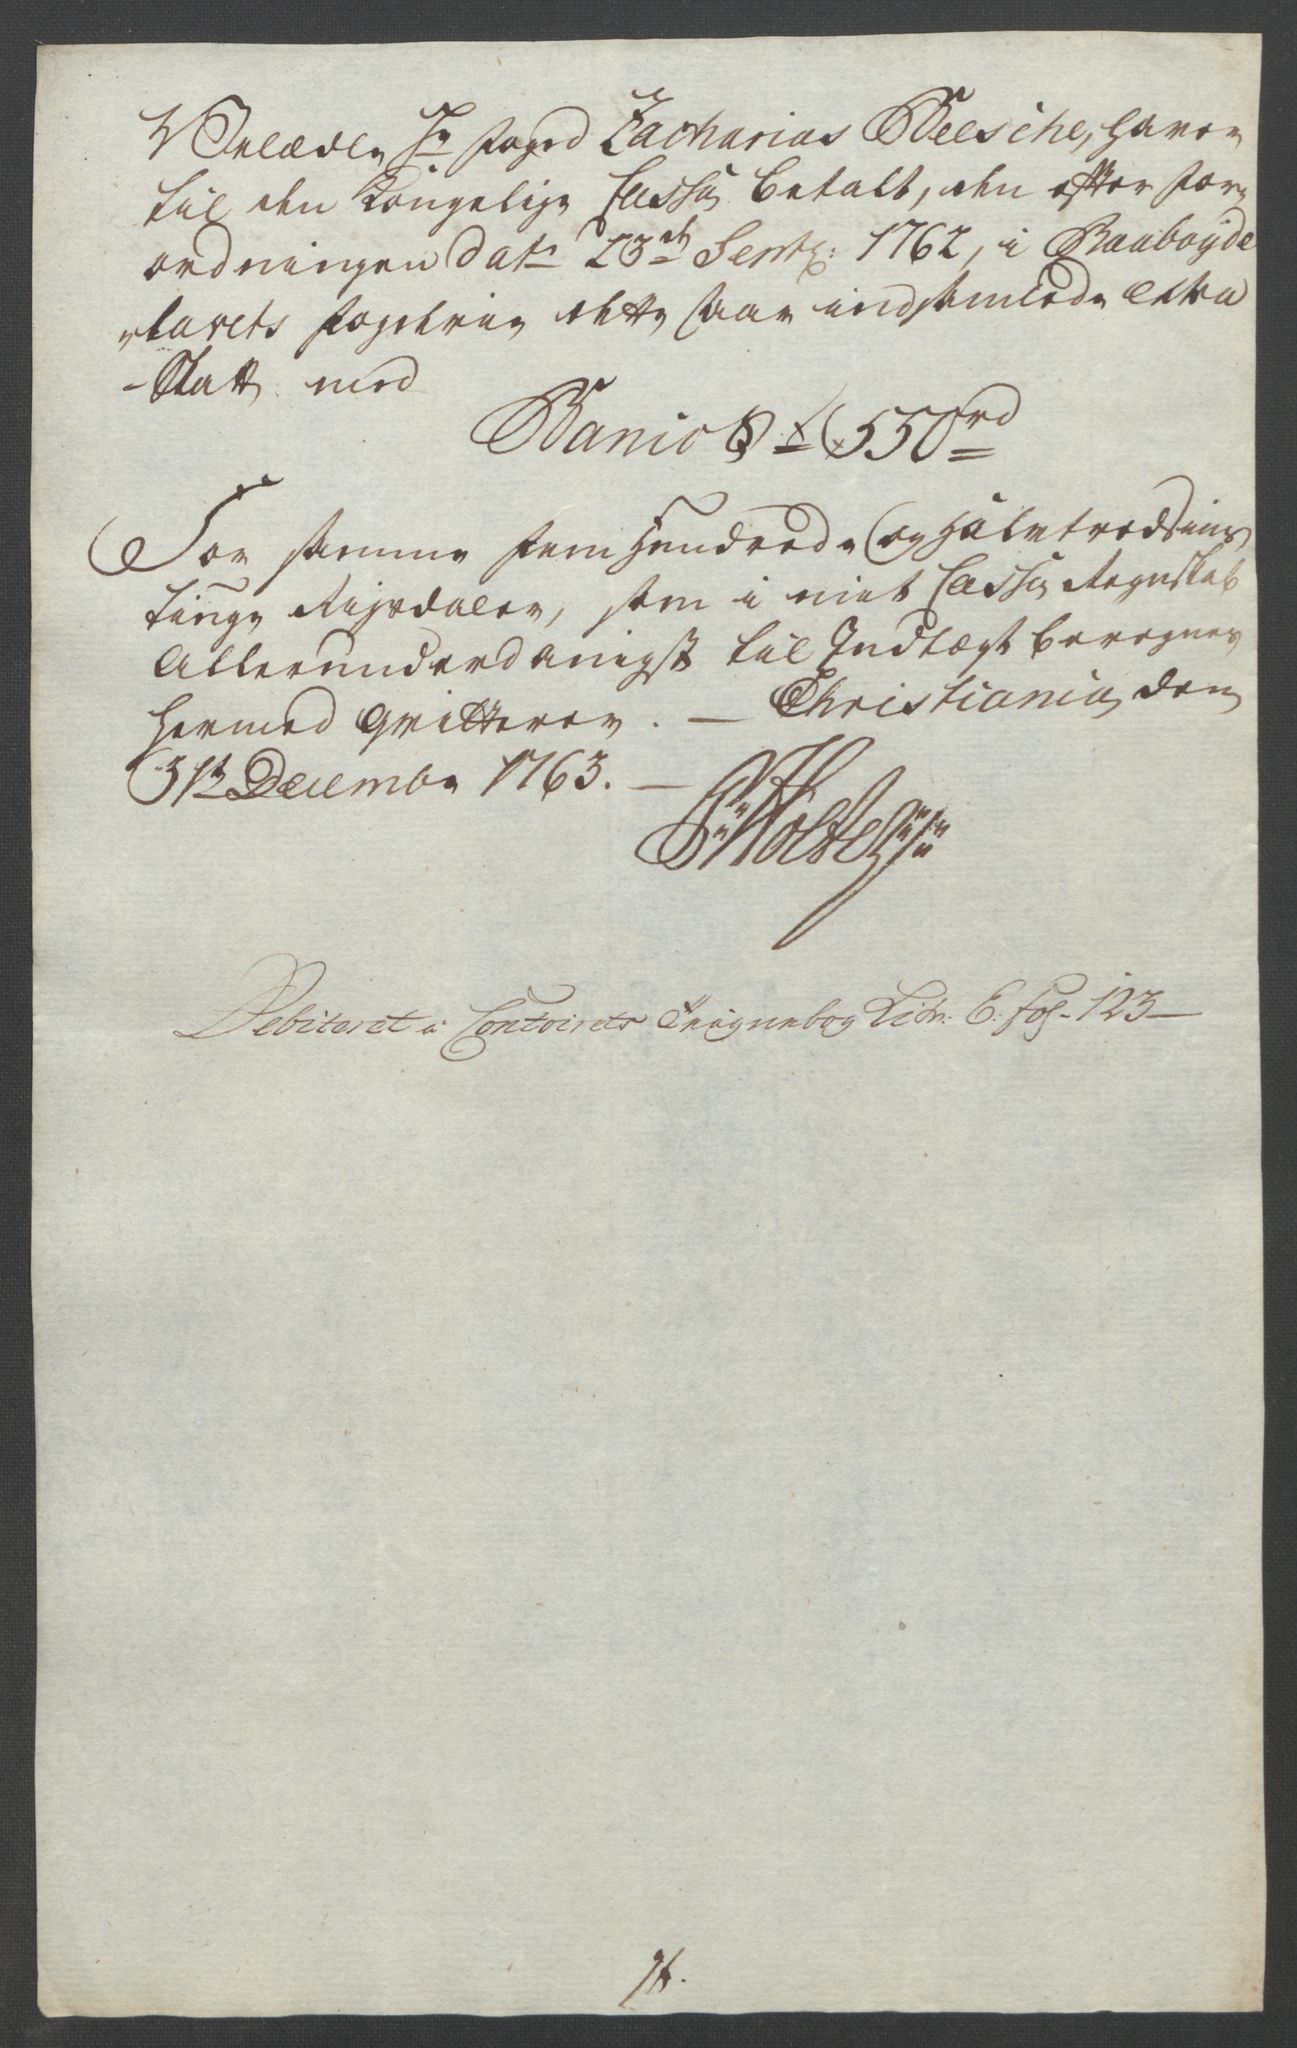 Velædle Hr Foged Zacharias Beesche, haver
til den Kongelige Cassa betalt, den efter For-
ordningen dat: 23de Septr: 1762, i Raabøyde
-lavets Fogderie dette Aar indsamlede Extra
-Skatt med
550 rd
For samme Fem Hundrede og Halvtredsins
tinge Rigsdaler, som i mit Cassa Regnskab
Allerunderdanigst til Indtægt beregnes
hermed qvitterer. — Christiania den
31te Decembr 1763. —
PHolte
Debiteret i Contoirets Litr: E. fol. 123 —